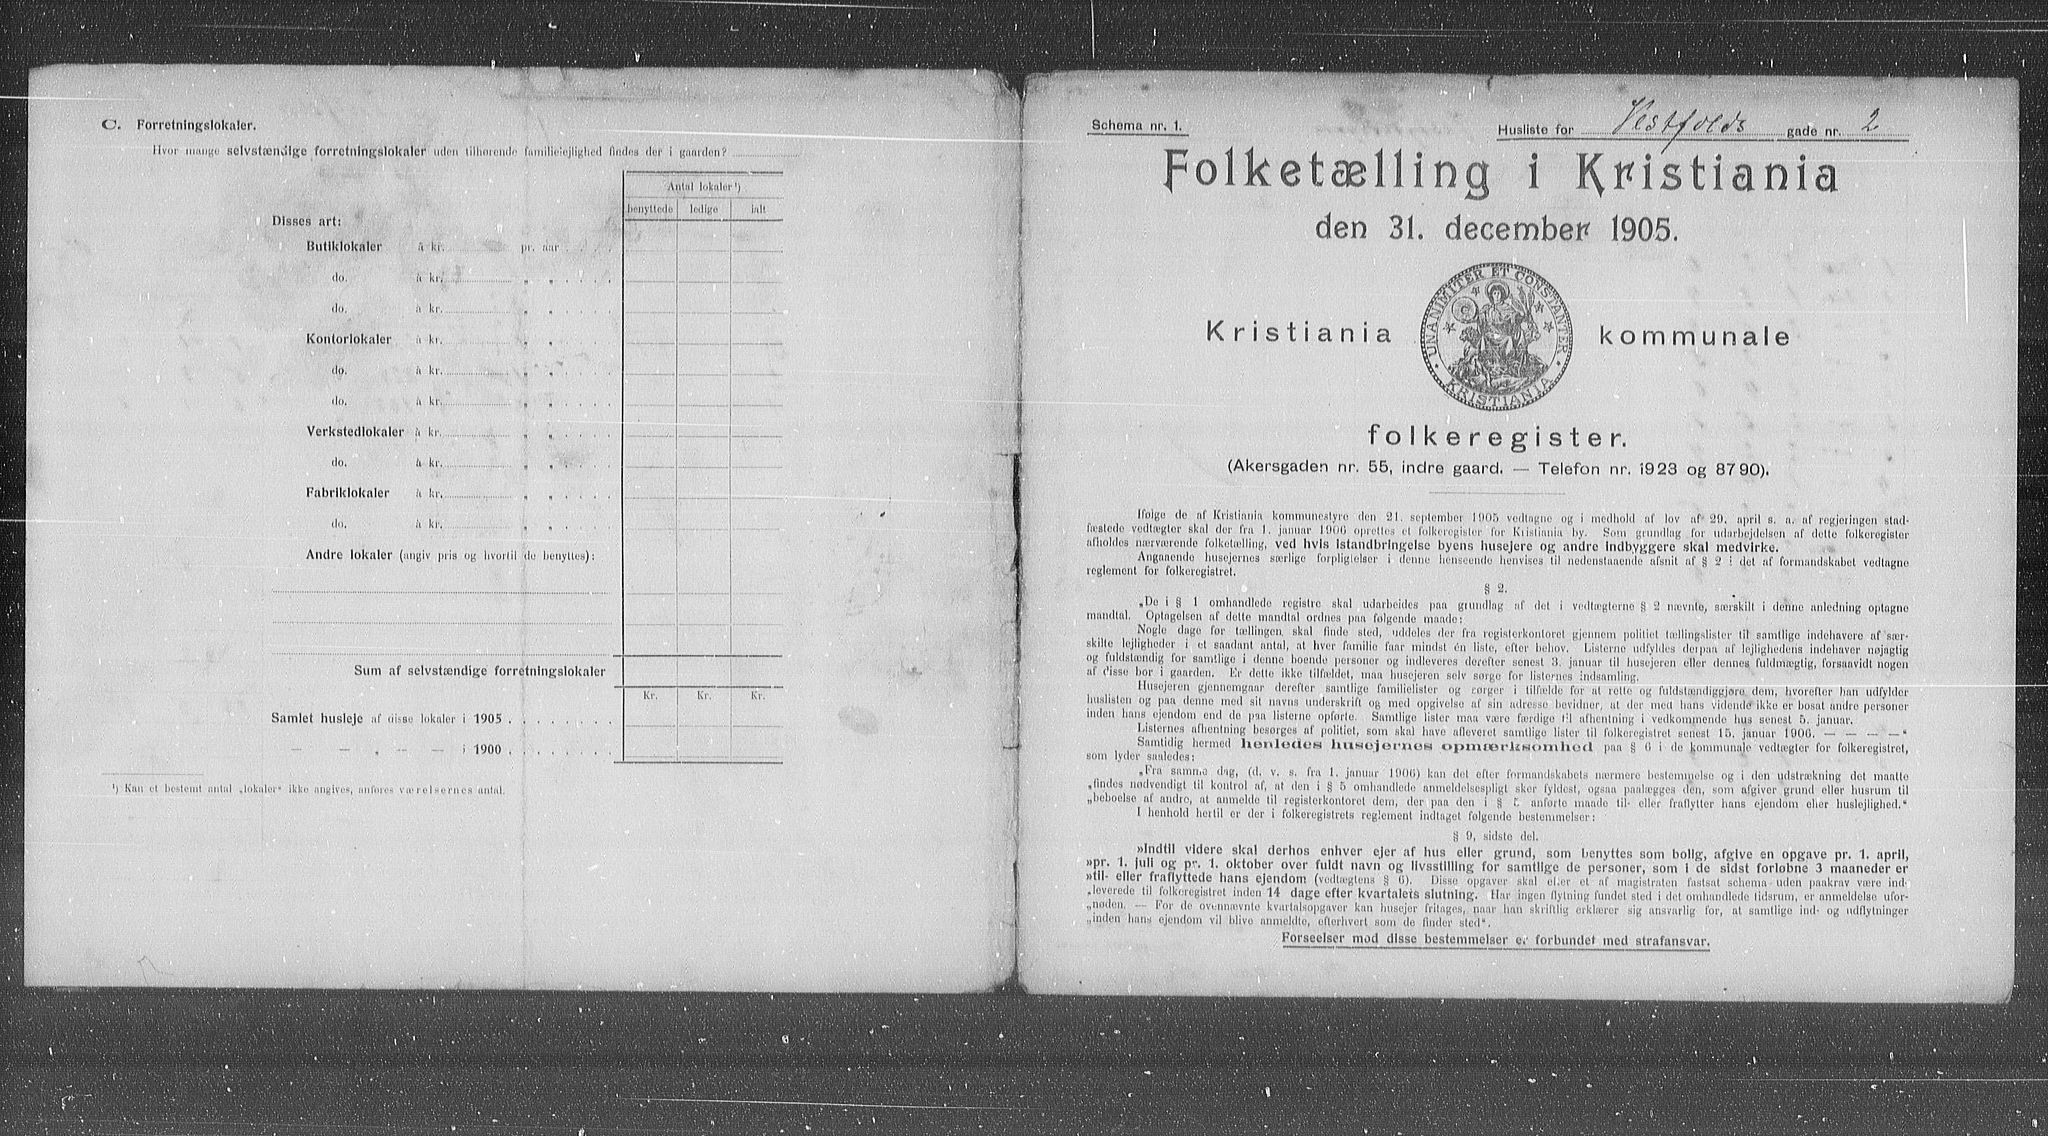 C. Forretningslokaler.
Hvor mange selvstændige forretningslokaler uden tilhørende familielejlighed findes der i gaarden?
Antal lokaler ¹)
benyttede ledige ialt
Disses art:
Butiklokaler à kr. pr. aar
do. à kr. „ „
do. à kr. „ „
Kontorlokaler à kr. „ „
do. à kr. „ „
do. à kr. „ „
Verkstedlokaler à kr. „ „
do. à kr. „ „
Fabriklokaler à kr. „ „
do. à kr. „ „
Andre lokaler (angiv pris og hvortil de benyttes):
Sum af selvstændige forretningslokaler
Kr. Kr. Kr.
Samlet husleje af disse lokaler i 1905
— — „ — — i 1900
¹) Kan et bestemt antal „lokaler“ ikke angives, anføres værelsernes antal.
Schema nr. 1.
Husliste for Vestfolds gade nr. 2
Folketælling i Kristiania
den 31. december 1905.
UNANIMITER ET CONSTANTER
KRISTIANIA
Kristiania kommunale
folkeregister.
(Akersgaden nr. 55, indre gaard. — Telefon nr. 1923 og 8790).
Ifølge de af Kristiania kommunestyre den 21. september 1905 vedtagne og i medhold af lov af 29. april s. a. af regjeringen stad-
fæstede vedtægter skal der fra 1. januar 1906 oprettes et folkeregister for Kristiania by. Som grundlag for udarbejdelsen af dette folkeregister
afholdes nærværende folketælling, ved hvis istandbringelse byens husejere og andre indbyggere skal medvirke.
Angaaende husejernes særlige forpligtelser i denne henseende henvises til nedenstaaende afsnit af § 2 i det af formandskabet vedtagne
reglement for folkeregistret.
§ 2.
„De i § 1 omhandlede registre skal udarbeides paa grundlag af det i vedtægterne § 2 nævnte, særskilt i denne anledning optagne
mandtal. Optagelsen af dette mandtal ordnes paa følgende maade:
Nogle dage før tællingen skal finde sted, uddeles der fra registerkontoret gjennem politiet tællingslister til samtlige indehavere af sær-
skilte lejligheder i et saadant antal, at hver familie faar mindst én liste, efter behov. Listerne udfyldes derpaa af lejlighedens indehaver nøjagtig
og fuldstændig for samtlige i denne boende personer og indleveres derefter senest 3. januar til husejeren eller dennes fuldmægtig, forsaavidt nogen
af disse bor i gaarden. Er dette ikke tilfældet, maa husejeren selv sørge for listernes indsamling.
Husejeren gjennemgaar derefter samtlige familielister og sørger i tilfælde for at rette og fuldstændiggjøre dem, hvorefter han udfylder
huslisten og paa denne med sit navns underskrift og med opgivelse af sin adresse bevidner, at der med hans vidende ikke er bosat andre personer
inden hans ejendom end de paa listerne opførte. Samtlige lister maa være færdige til afhentning i vedkommende hus senest 5. januar.
Listernes afhentning besørges af politiet, som skal have afleveret samtlige lister til folkeregistret senest 15. januar 1906. — — — —“
Samtidig hermed henledes husejernes opmærksomhed paa § 6 i de kommunale vedtægter for folkeregistret,
som lyder saaledes:
„Fra samme dag, (d. v. s. fra 1. januar 1906) kan det efter formandskabets nærmere bestemmelse og i den udstrækning det maatte
„findes nødvendigt til kontrol af, at den i § 5 omhandlede anmeldelsespligt sker fyldest, ogsaa paalægges den, som afgiver grund eller husrum til
„beboelse af andre, at anmelde til registerkontoret dem, der paa den i § 5 anførte maade til- eller fraflytter hans ejendom eller huslejlighed.“
I henhold hertil er der i folkeregistrets reglement indtaget følgende bestemmelser:
§ 9, sidste del.
»Indtil videre skal derhos enhver ejer af hus eller grund, som benyttes som bolig, afgive en opgave pr. 1. april,
»pr. 1. juli og pr. 1. oktober over fuldt navn og livsstilling for samtlige de personer, som i de sidst forløbne 3 maaneder er
»til- eller fraflyttede hans ejendom (vedtægtens § 6). Disse opgaver skal efter et af magistraten fastsat schema uden paakrav være ind-
„leverede til folkeregistret inden 14 dage efter kvartalets slutning. Har ingen flytning fundet sted i det omhandlede tidsrum, er anmeldelse ufor-
„nøden. — For de ovennævnte kvartalsopgaver kan husejer fritages, naar han skriftlig erklærer sig ansvarlig for, at samtlige ind- og udflytninger
„inden hans ejendom vil blive anmeldte, efterhvert som de finder sted“.
Forseelser mod disse bestemmelser er forbundet med strafansvar.